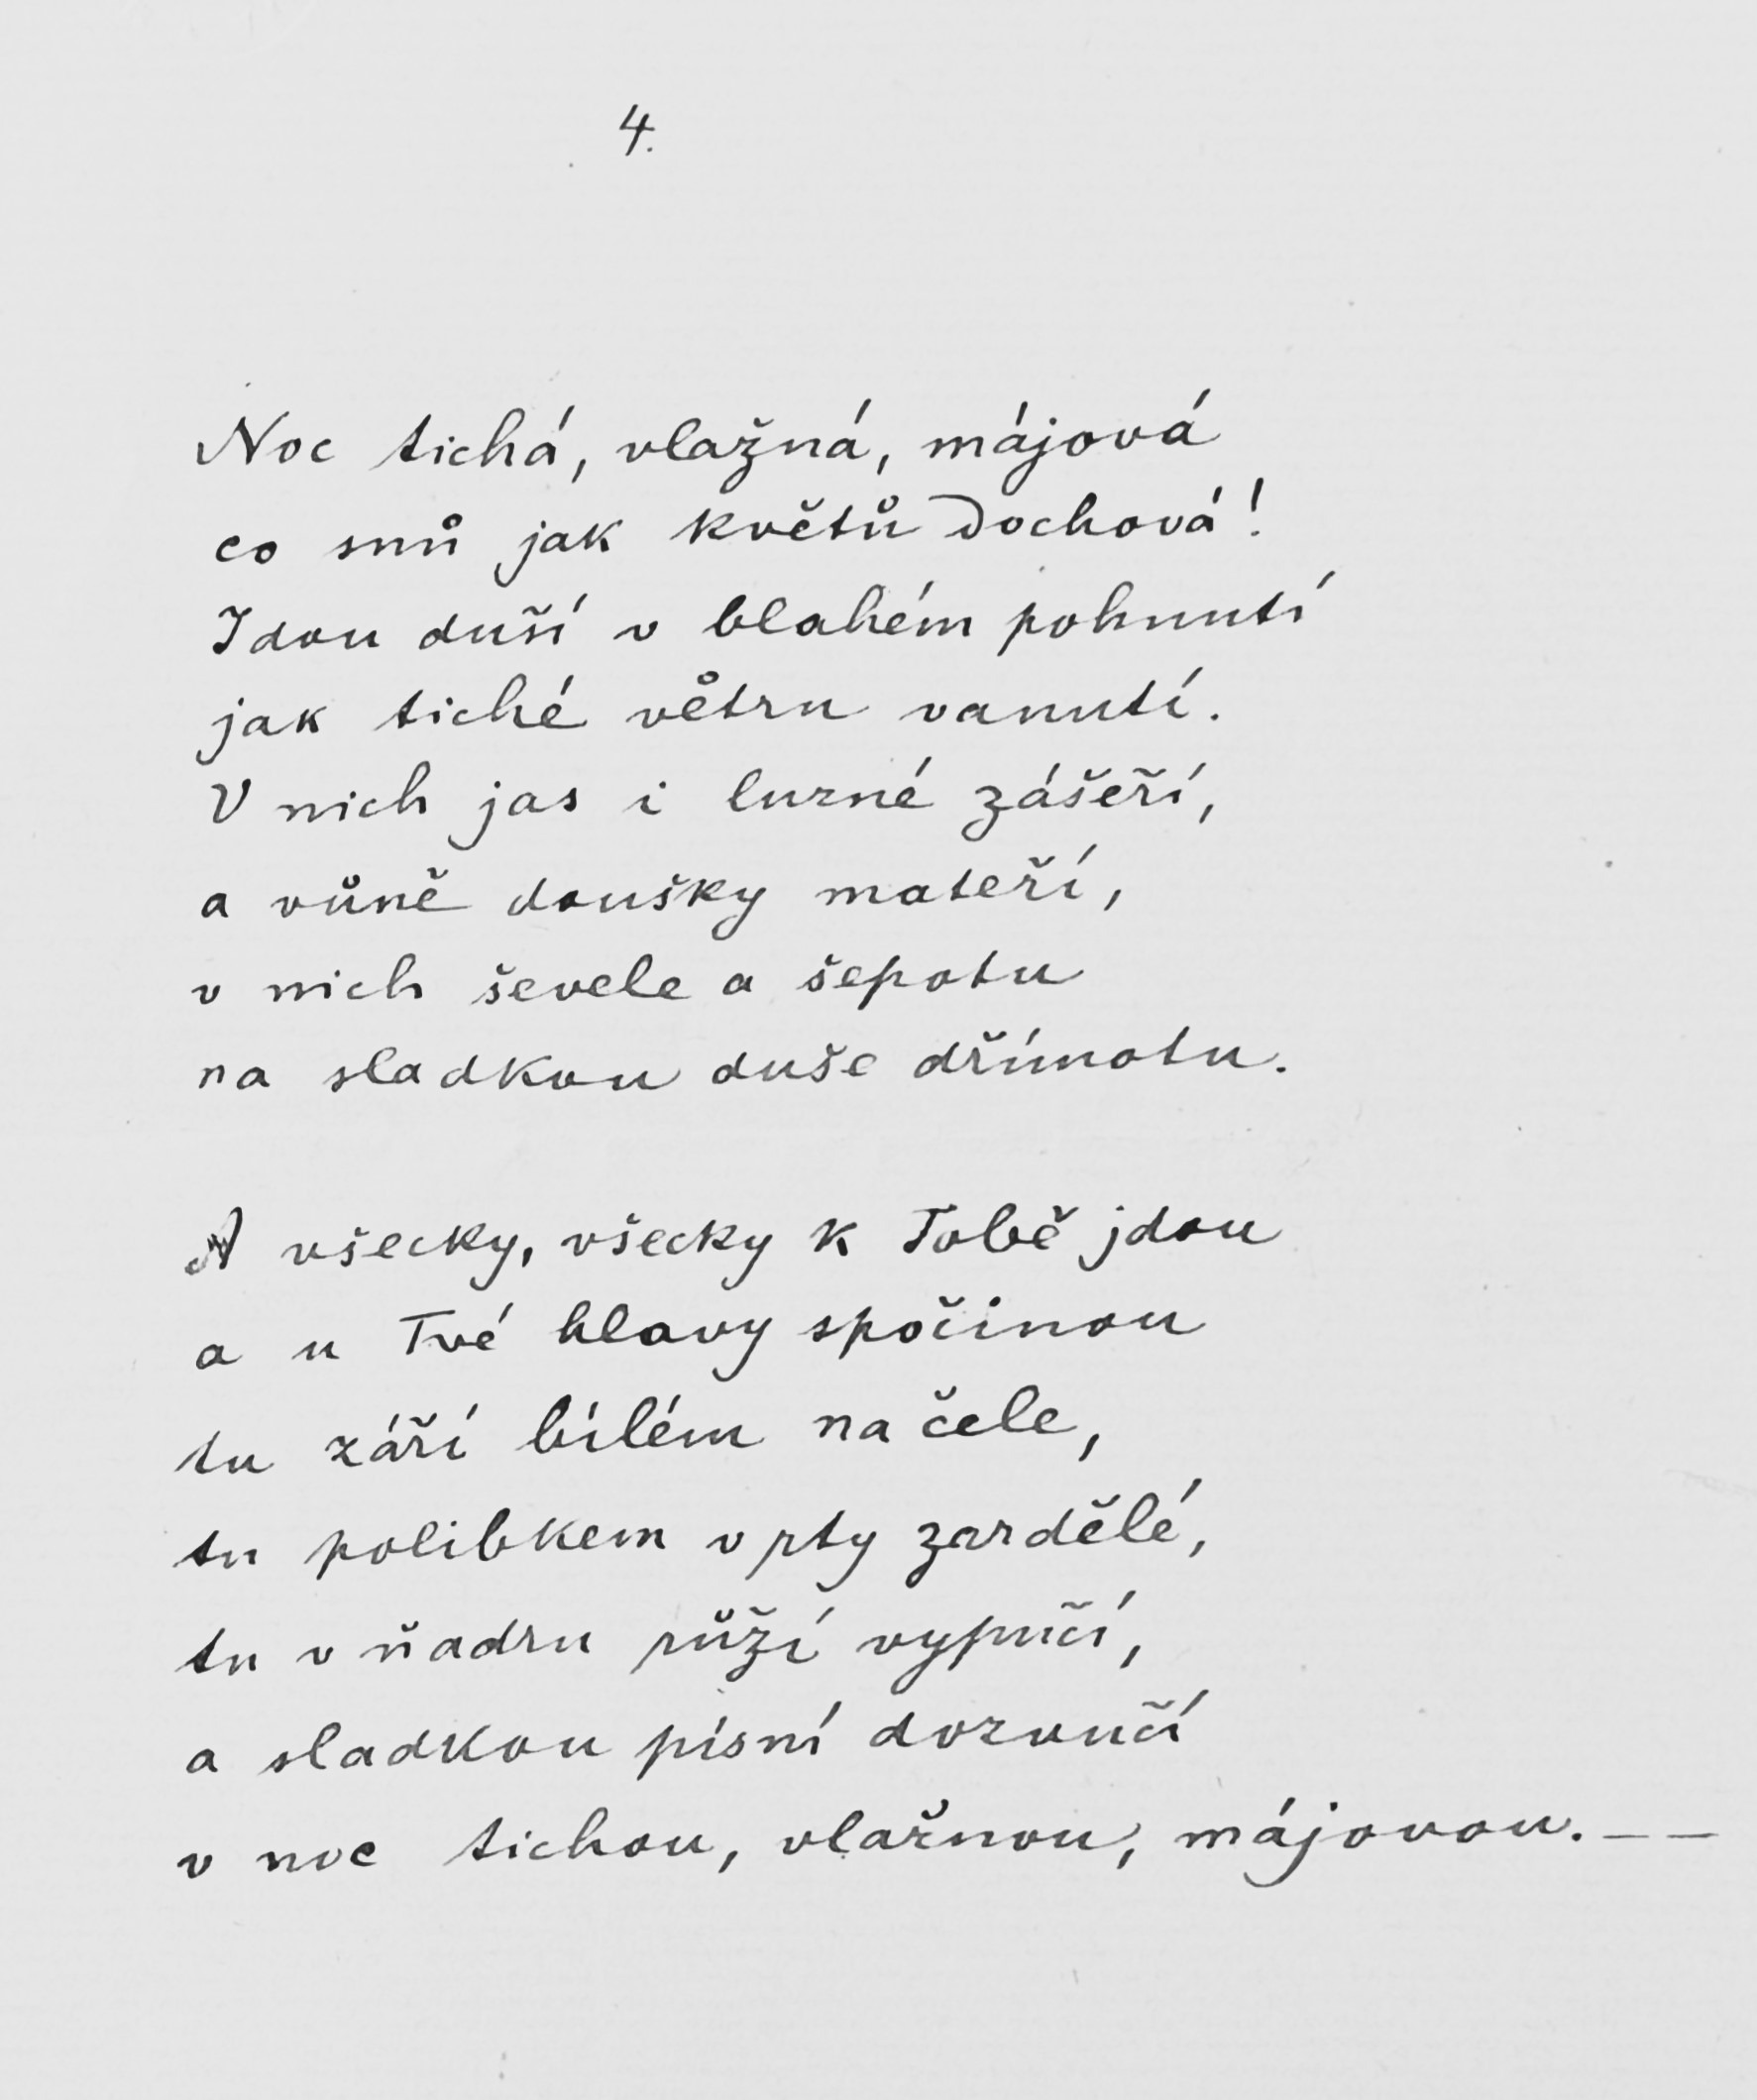 4.
Noc tichá, vlažná, májová
co snů jak květů dochová!
Jdou duší v blahém pohnutí
jak tiché větru vanutí.
V nich jas i lurné zášeří,
a vůně doušky mateří,
v nich ševele a šepotu
na sladkou duše dřímotu.
A všecky, všecky k Tobě jdou
a u Tvé hlavy spočinou
tu září bílém na čele,
tu polibkem v rty zardělé,
tu v ňadru růží vypučí,
a sladkou písní dozvučí
v noc tichou, vlažnou, májovou. – –